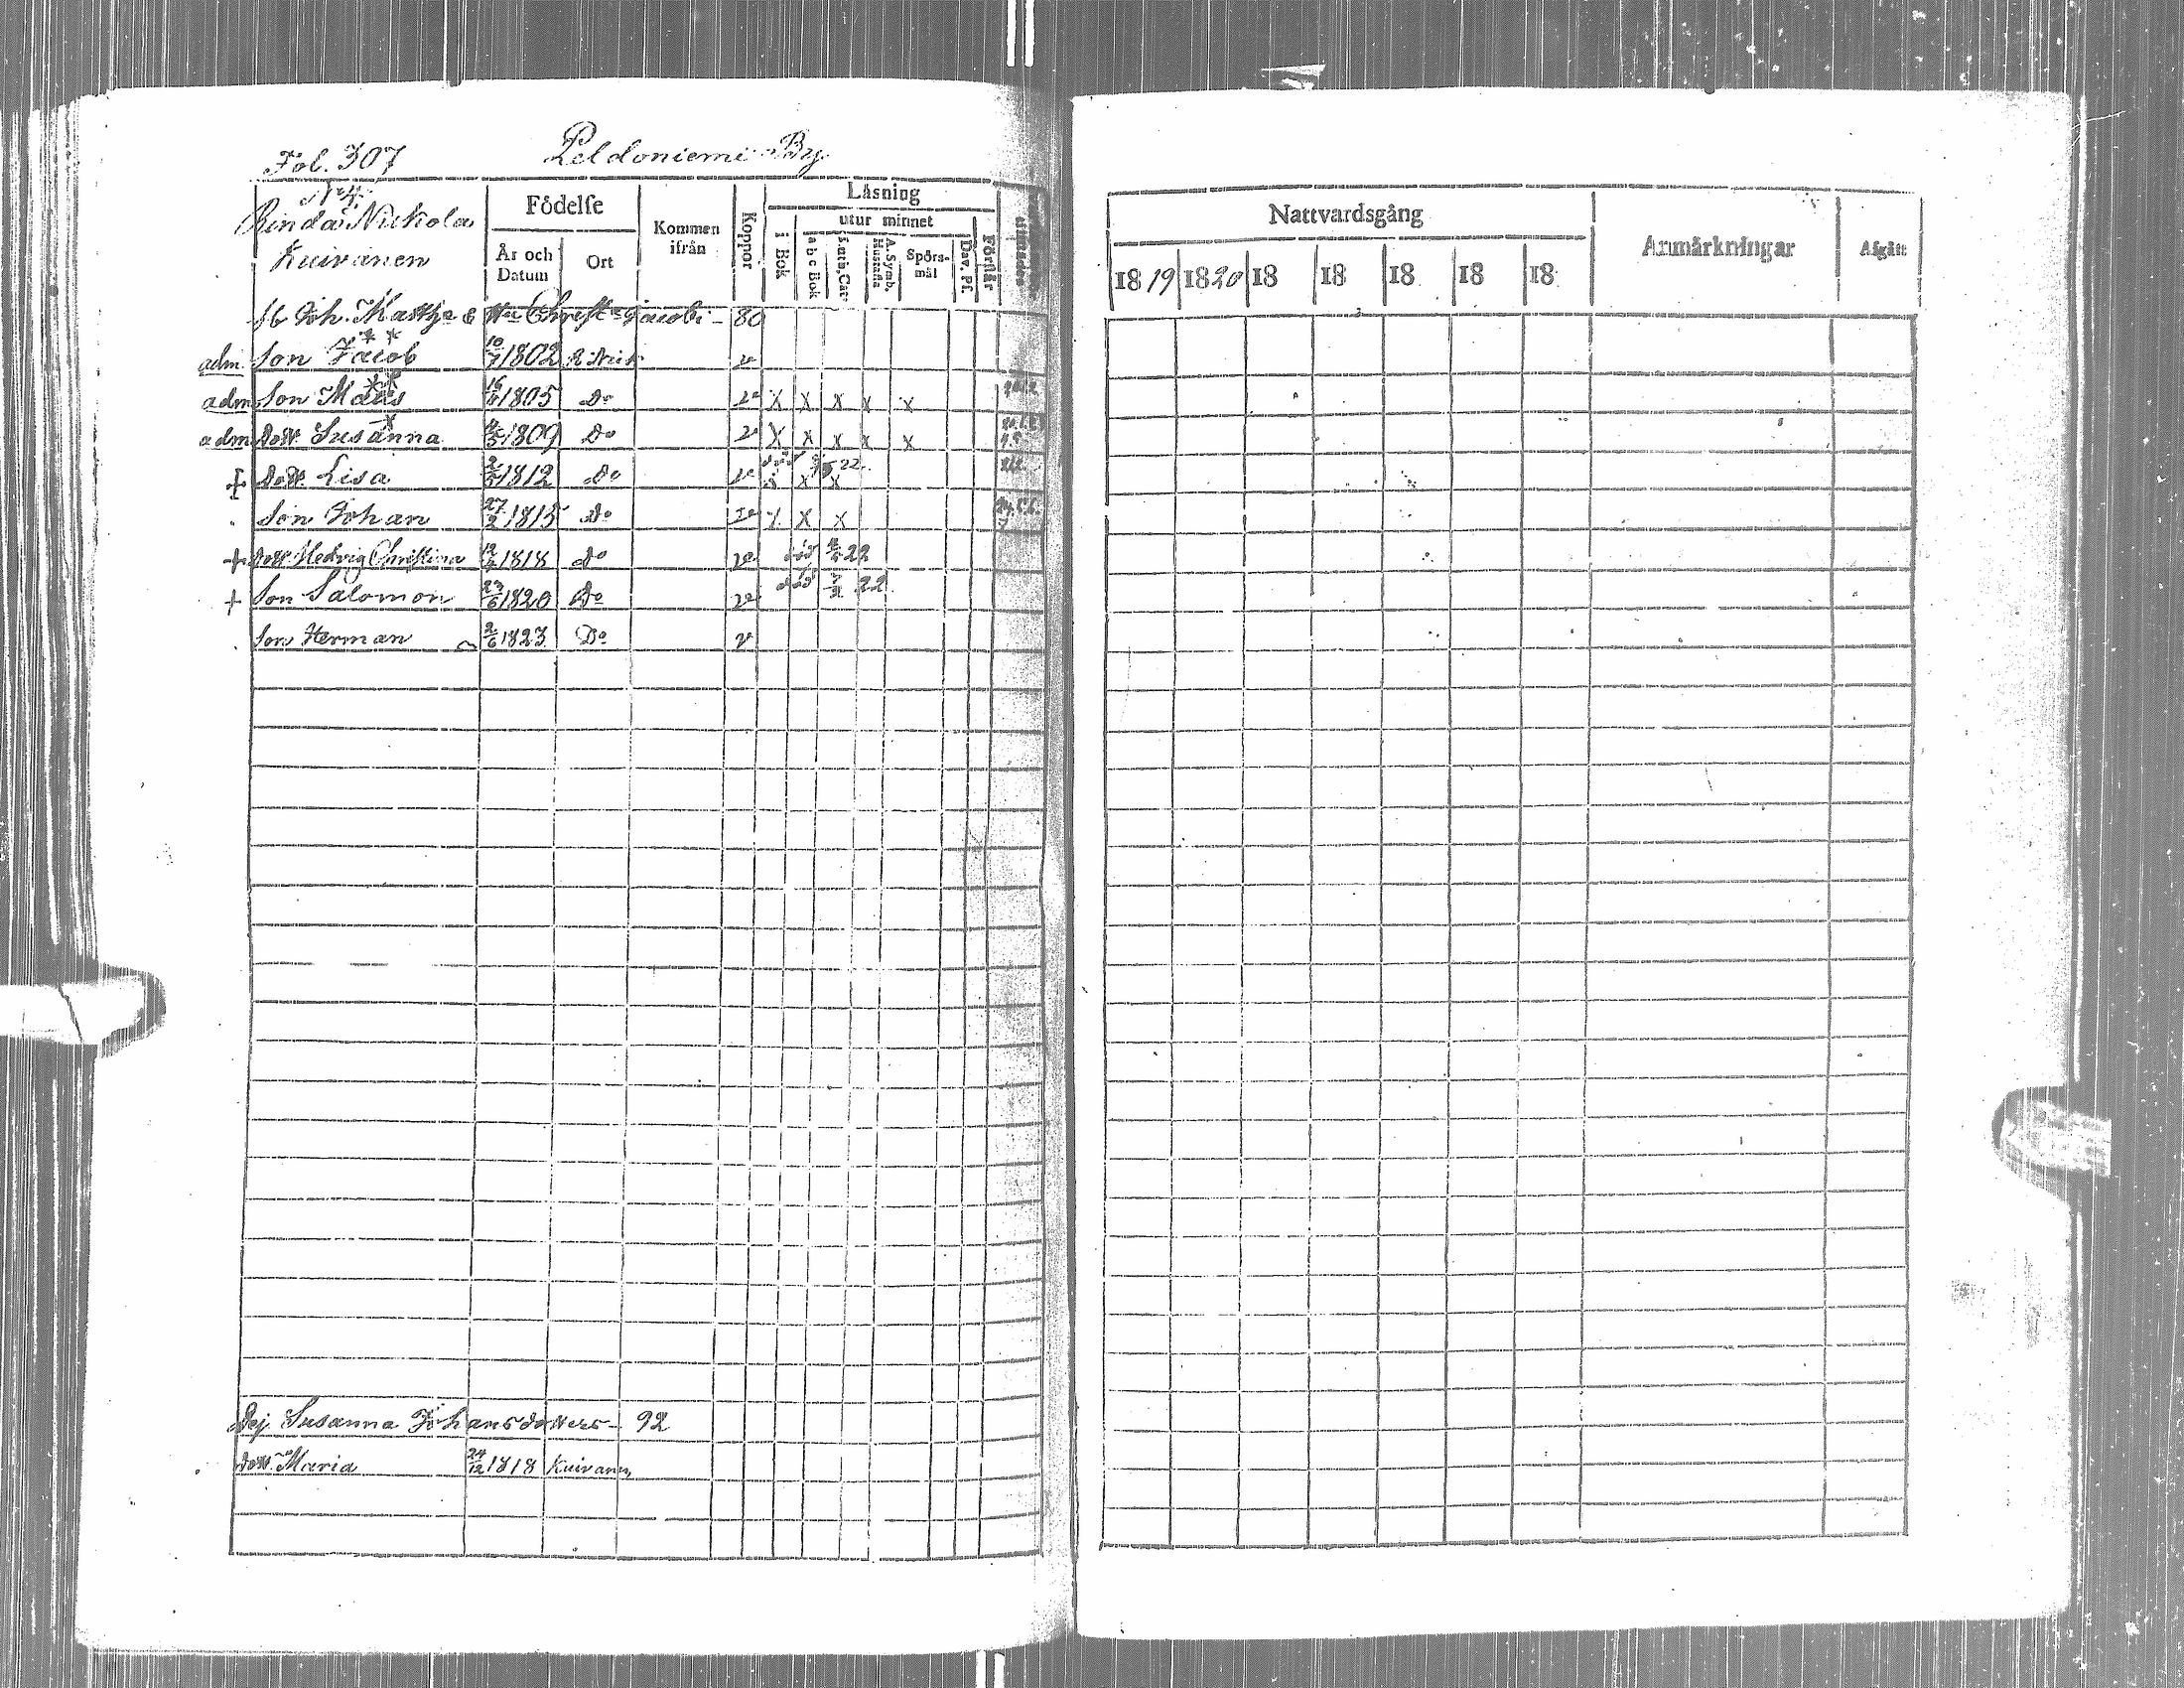 Fol. 307 Peldoniemi By
N:o 4.
Rinda Nickola
Kuivanen
Födelse
År och Datum
Ort
Kommen ifrån
Koppor
Läsning
i Bok
utur minnet
a b c Bok
Luth. Cat.
A. Symb. Hustafla
Spörsmål
Dav. Ps.
Förstår
Joh. Matths & Christ Jacobi - 80
adm. Son Jacob 10/7 1802 v
adm Son Mats 16/9 1805 Do v x x x x x
adm dott. Susanna 4/5 1809 Do v x x x x x
+ dott. Lisa 1812 Do v död 22 x x x
Son Johan 27/2 1815 Do v x x x
+ dott. Hedvig Christina 1818 do v död 22
+ Son Salomon 23/6 1820 Do v död 22
Son Herman 2/6 1823 Do v
Pej Susanna Johansdotters - 92
dott. Maria 24/12 1818 Kuivan
Nattvardsgång
1819 1820 18 18 18 18 18
Anmärkningar
Afgått